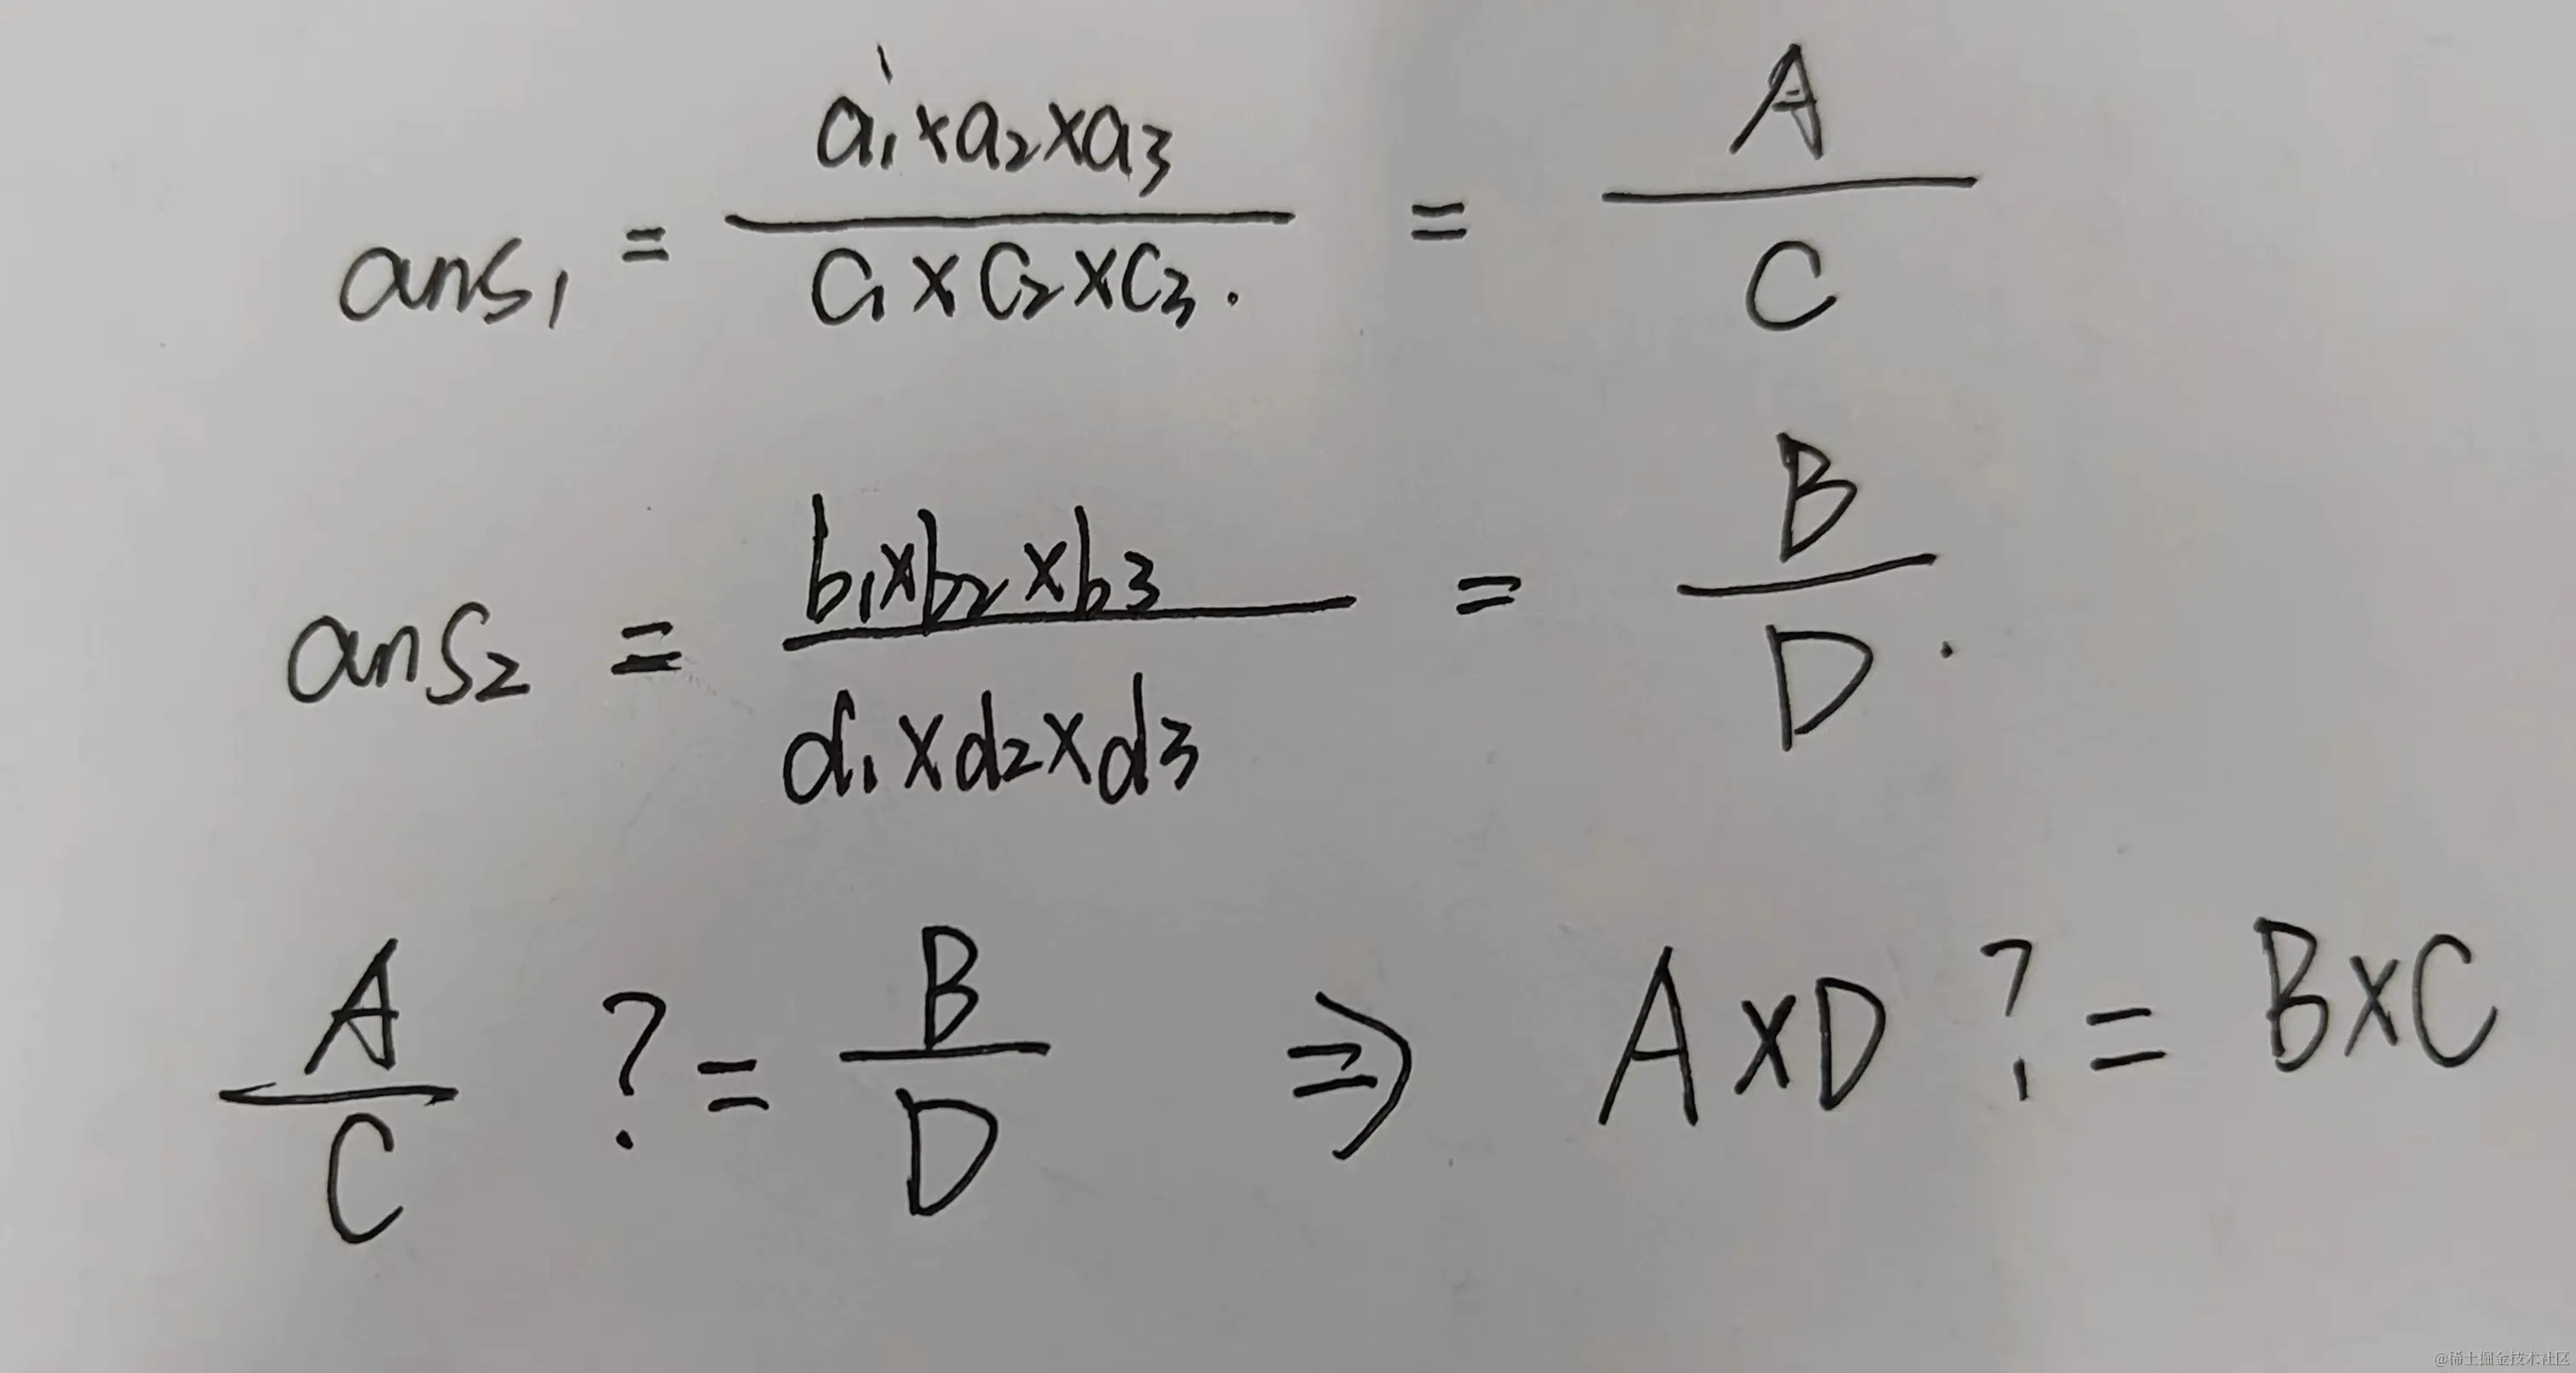 ans₁ = (a₁×a₂×a₃)/(c₁×c₂×c₃.) = A/C
ans₂ = (b₁×b₂×b₃)/(d₁×d₂×d₃) = B/D.
A/C ?= B/D ⇒ A×D ?= B×C
@稀土掘金技术社区